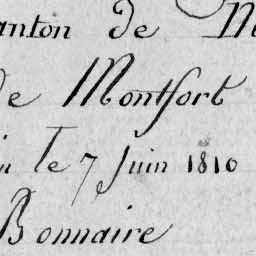 anton de M
de Montfort
le 7 Juin 1810
Bonnaire